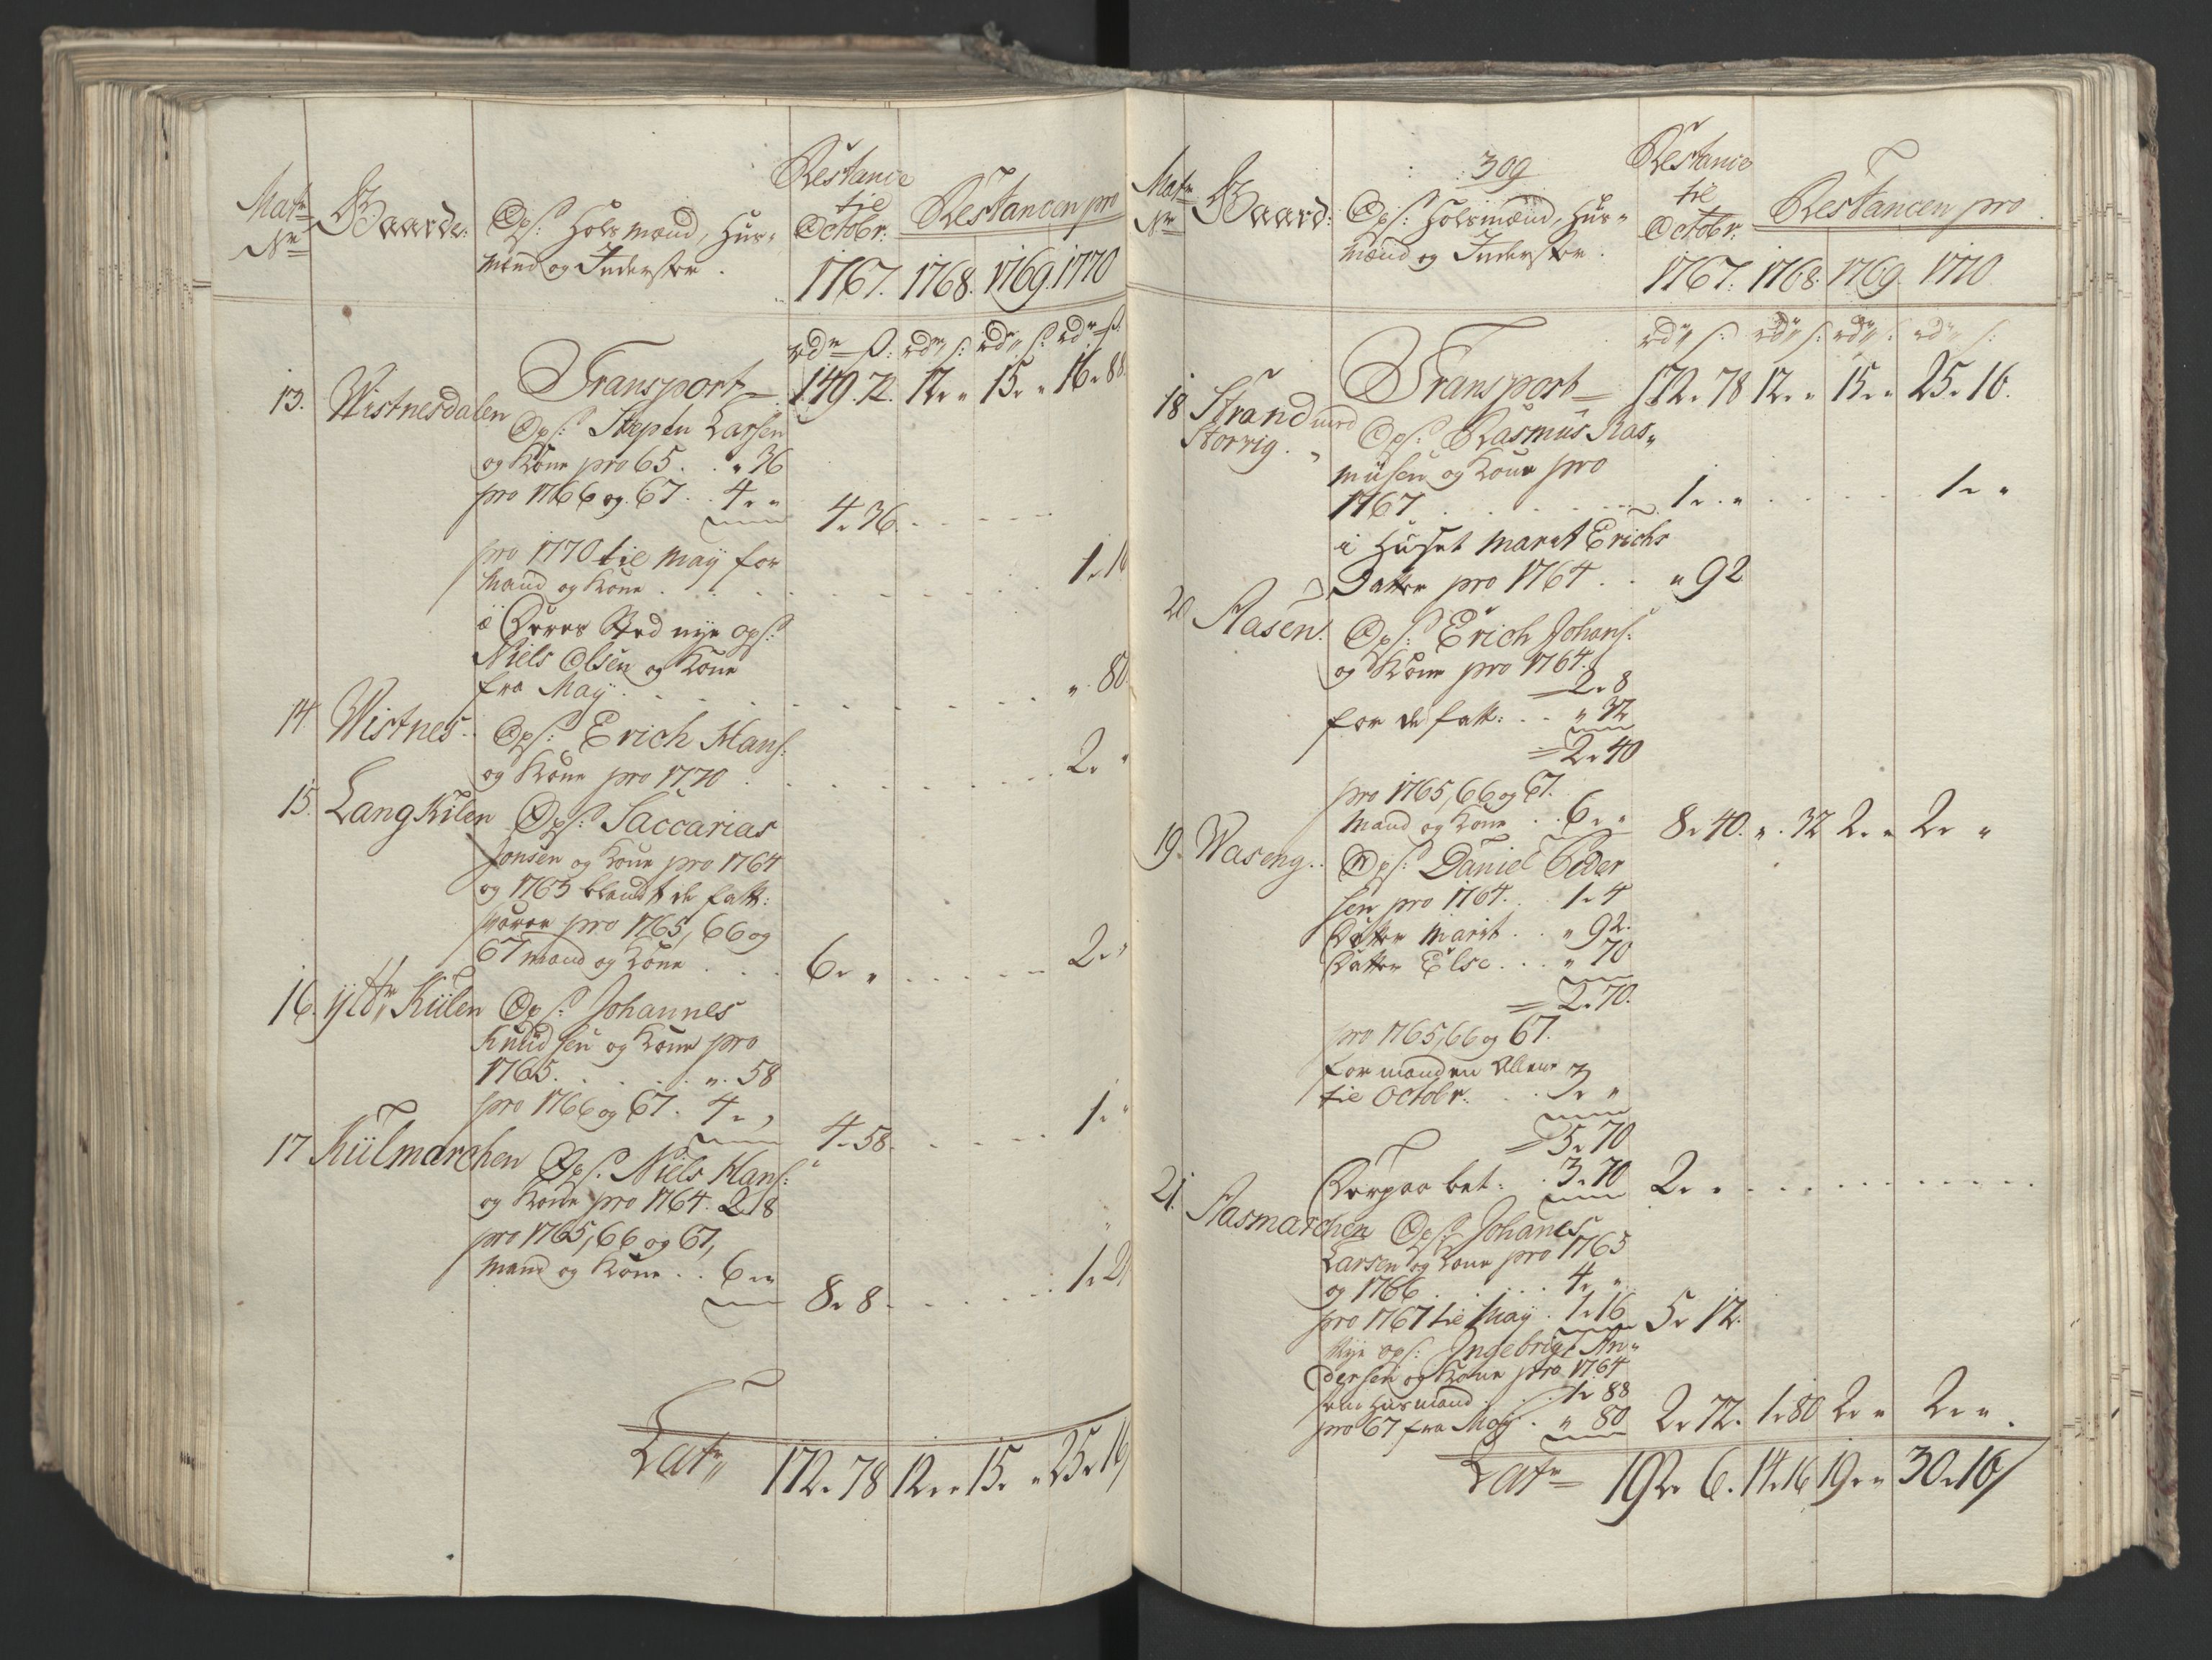 Matr
Nr
Gaarde:
Ops: Holsmænd, Hus-
mænd og Inderster.
Restance
til
Octobr:
1767.
Restancen pro
1768. 1769. 1770
rdr ß: rdr ß: rdr ß: rdr ß:
Transport 149. 72. 12 „ „ 15 „ „ 16 „ 88
13. Wistnesdalen
Ops: Larsen
og Kone pro 65 . . „ 36
pro 1766 og 67 . . 4 „ „
4 „ 36.
pro 1770 til May for
Mand og Kone . . . 1 „ 16
i Deres Sted nye ops:
Niels Olsen og Kone
fra May . . . „ 80
14. Wistnes.
Ops: Erich Hans:
og Kone pro 1770 . . . 2 „ „
15. Lang Kilen
Ops: Saccarias
Jonsen og Kone pro 1764
og 1765 blandt de fatt:
pro 1765, 66 og
67 mand og Kone . . . 6 „ „ . . . 2 „ „
16. ytt: Kiilen
Ops: Johannes
Knudsen og Kone pro
1765. . . . „ 58
pro 1766 og 67. 4 „ „
4 „ 58. . . . 1 „ „
17 Kiilmarchen
Ops: Niels Hans:
og Kone pro 1764. 2 „ 8
pro 1765, 66 og 67,
Mand og Kone . . 6 „ „
8 „ 8 . . . 1 „ 2
Latr 172 „ 78 12 „ „ 15 „ „ 25 „ 16
309
Matr
Nr
Gaard:
Ops: Holsmænd, Hus-
mænd og Inderster.
Restance
til
Octobr:
1767.
Restancen pro
1768. 1769. 1770
rdr ß: rdr ß: rdr ß: rdr ß:
Transport 172 „ 78 12 „ „ 15 „ „ 25 „ 16.
18 Strand med
Storvig.
Ops: Rasmus Ras-
musen og Kone pro
1767 . . . 1 „ „ . . . 1 „ „
i Huset Marit Erichs
Datter pro 1764 . . „ 92
20 Aasen.
Ops: Erich Johans:
og Kone pro 1764.
2 „ 8
for de fatt: . . „ 32
2 „ 40
pro 1765, 66 og 67.
Mand og Kone . . 6 „ „ 8 „ 40. „ 32 2 „ „ 2 „ „
19. Waseng.
Ops: Daniel Peder
sen pro 1764. . 1 „ 4
Datter Marit . . „ 92.
Datter Else . . . „ 70
2 „ 70.
pro 1765, 66 og 67.
for manden Allene
til Octobr. . . 3 „ „
5 „ 70
Derpaa bet: . 3 „ 70 2 „ „
21. Aasmarchen
Ops: Johanes
Larsen og Kone pro 1765
og 1766 . . . 4 „ „
pro 1767 til May . 1 „ 16 5 „ 12.
Nye ops: Ingebrigt An-
dersen og Kone pro 1764
som Husmand . . 1 „ 88
pro 67 fra May . „ 80 2 „ 72. 1 „ 80 2 „ „ 2 „ „
Latr 192 „ 6. 14 „ 16 19 „ „ 30 „ 16